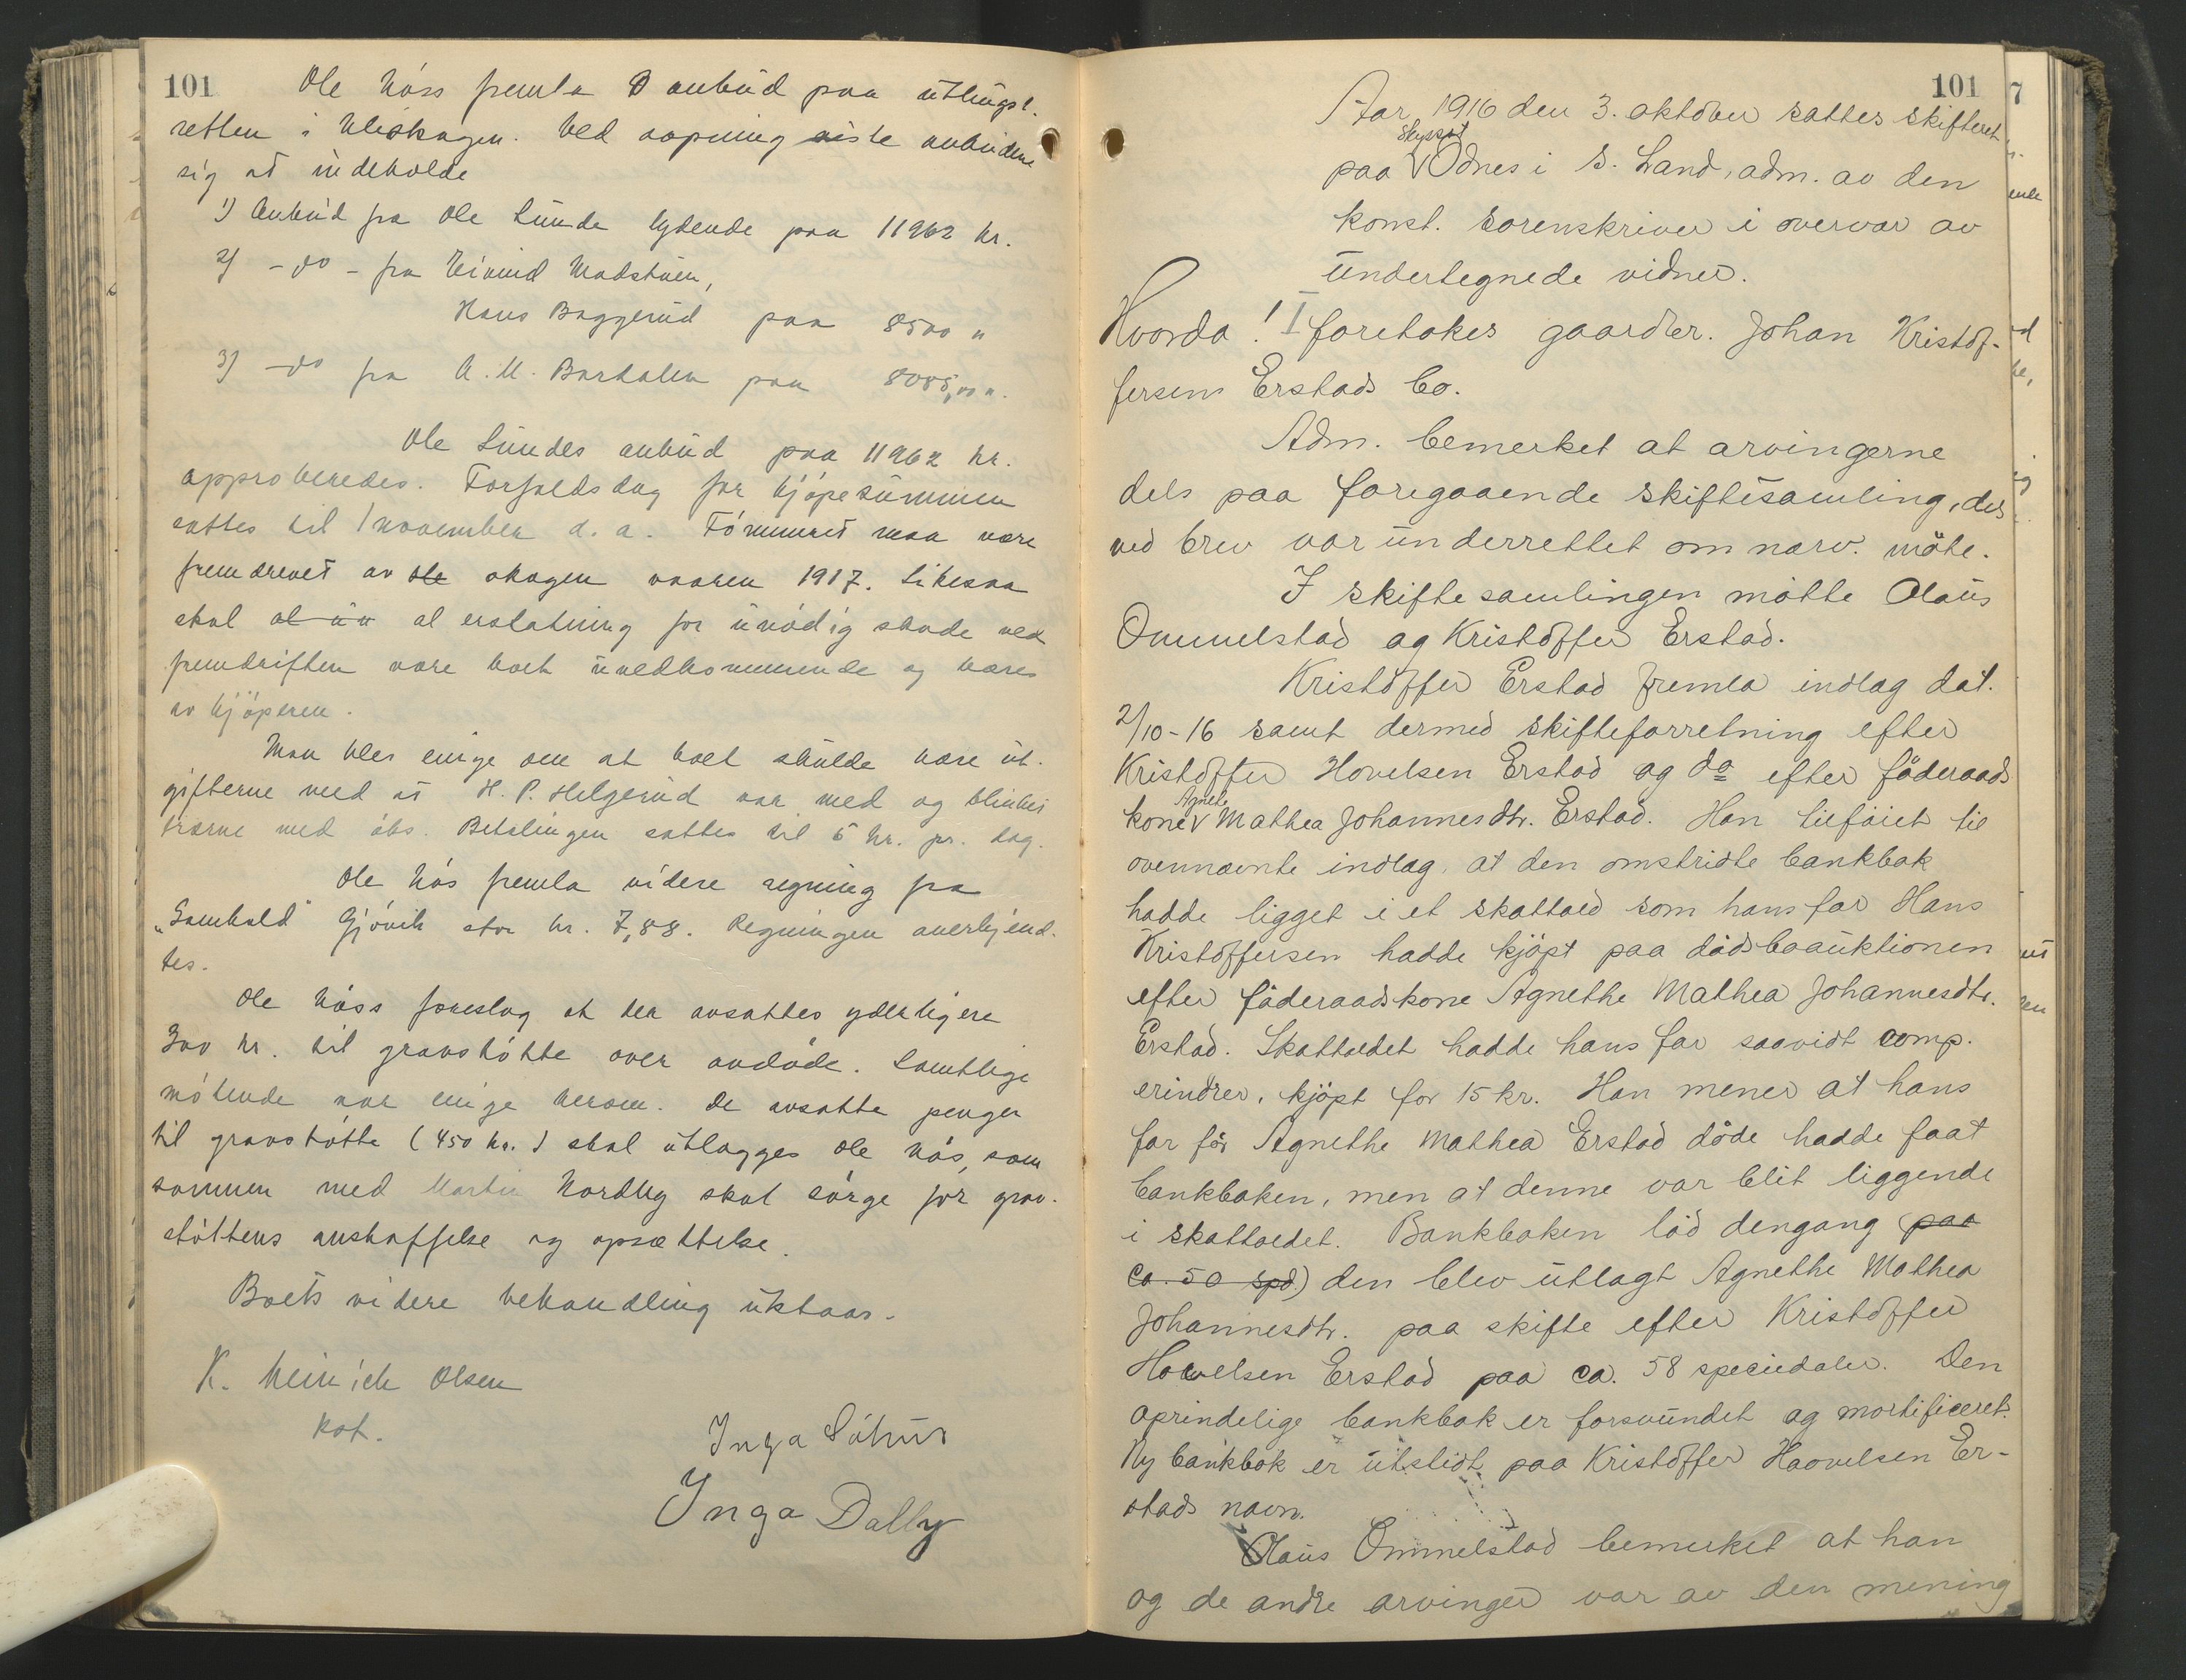 101
Ole Kóss fremla 3 anbud paa uthugst.
retten i Kliskogen. Ved aapning viste anbudene
sig at indeholde
1) Anbud fra Ole Lunde lydende paa 11962 kr.
2) - do - fra Eivind Madstuen,
Hans Baggerud paa 8500 "
3) - do fra A. M. Bartalen paa 8085,00 ".
Ole Lundes anbud paa 11962 kr.
approberedes. Forfaldsdag for kjöpesummen
sattes til 1 november d. a. Tömmeret maa være
fremdrevet av ole skogen vaaren 1917. Likesaa
skal al un al erstatning for unödig skade ved
fremdriften være boet uvedkommende og bæres
av kjöperen.
Man blev enige om at boet skulde bære ut-
gifterne med at H. P. Helgerud var med og blinket
trærne med öks. Betalingen sattes til 5 kr. pr. dag.
Ole Kós fremla videre regning fra
"Samhold" Gjövik stor kr. 7,88. Regningen anerkjend-
tes.
Ole Kóss foreslog at der avsattes yderligere
300 kr. til gravstötte over avdöde. Samtlige
mötende var enige herom. De avsatte penger
til gravstötte (450 kr.) skal utlægges Ole Kós, som
sammen med Martin Nordby skal sörge for grav-
stöttens anskaffelse og opsættelse.
Boets videre behandling utstaar.
K. Meinich Olsen
kst.
Inga Sóhus
Inga Dalby
101
Aar 1916 den 3. oktober sattes skifteret
Skysst
paa V Odnes i S. Land, adm. av den
konst. sorenskriver i overvær av
undertegnede vidner.
Hvorda! I foretokes gaardbr. Johan Kristof-
fersens Erstads bo.
Adm. bemerket at arvingerne
dels paa foregaaende skiftesamling, dels
ved brev var underrettet om nærv. möte.
I skiftesamlingen mötte Olaus
Ommelstad og Kristoffer Erstad.
Kristoffer Erstad fremla indlæg dat.
2/10-16 samt dermed skifteforretning efter
Kristoffer Hovelsen Erstad og do efter föderaads
Agnete
kone V Mathea Johannesdtr. Erstad. Han tilföiet til
ovennævnte indlæg, at den omstridte bankbok
hadde ligget i et skattoed som hans far Hans
Kristoffersen hadde kjöpt paa dödsboauktionen
efter föderaadskone Agnethe Mathea Johannesdtr.
Erstad. Skattoedet hadde hans far saavidt comp.
erindrer, kjöpt for 15 kr. Han mener at hans
far för Agnethe Mathea Erstad döde hadde faat
bankboken, men at denne var blit liggende
i skattoedet. Bankboken löd dengang (paa
ca. 50 spd.) den blev utlagt Agnethe Mathea
Johannesdtr. paa skifte efter Kristoffer
Hovelsen Erstad paa ca. 58 speciedaler. Den
oprindelige bankbok er forsvundet og mortificeret.
Ny bankbok er utstedt paa Kristoffer Haavelsen Er-
stads navn.
Olaus Ommelstad bemerket at han
og de andre arvinger var av den mening
7